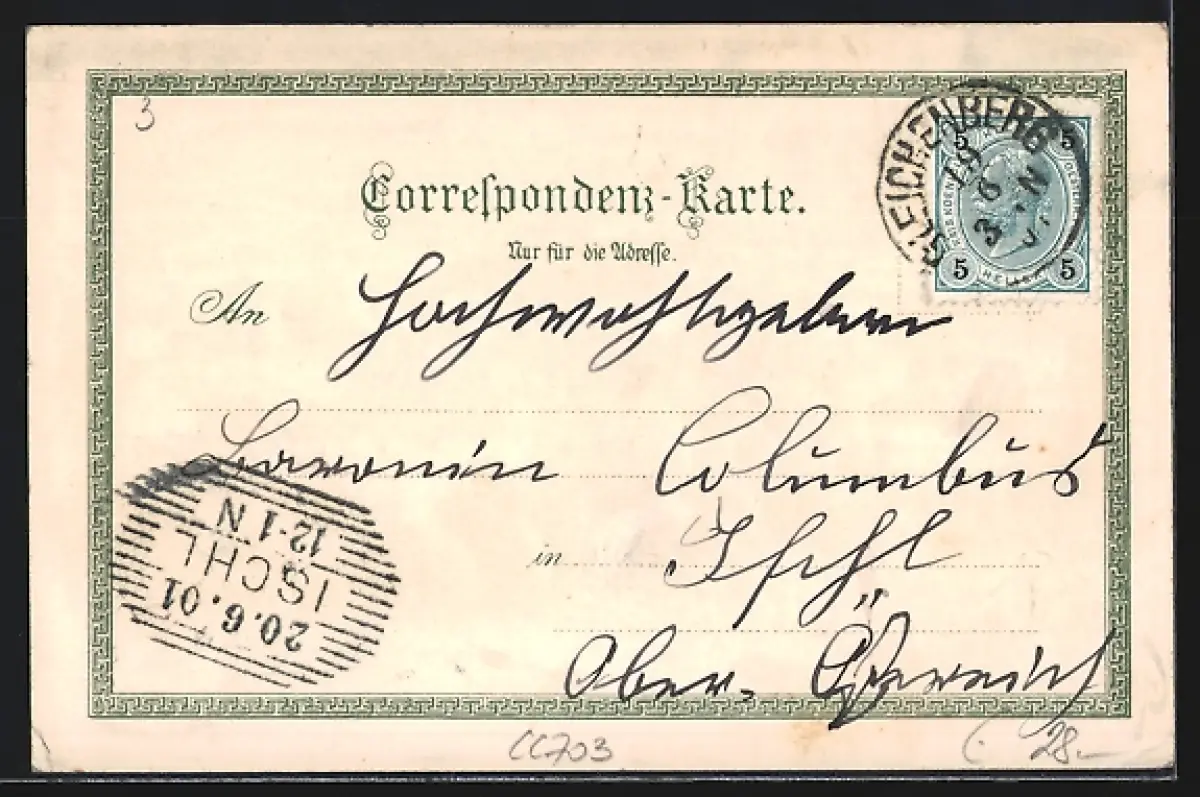 3
GLEICHENBERG
18
6
5 5
5 5
HELLER
Correspondenz-Karte.
Nur für die Adresse.
An Hochwohlgeboren
Baronin Columbus
in Ischl
Ober-Österreich
12-1 N
ISCHL
20.6.01
CC703
28.-